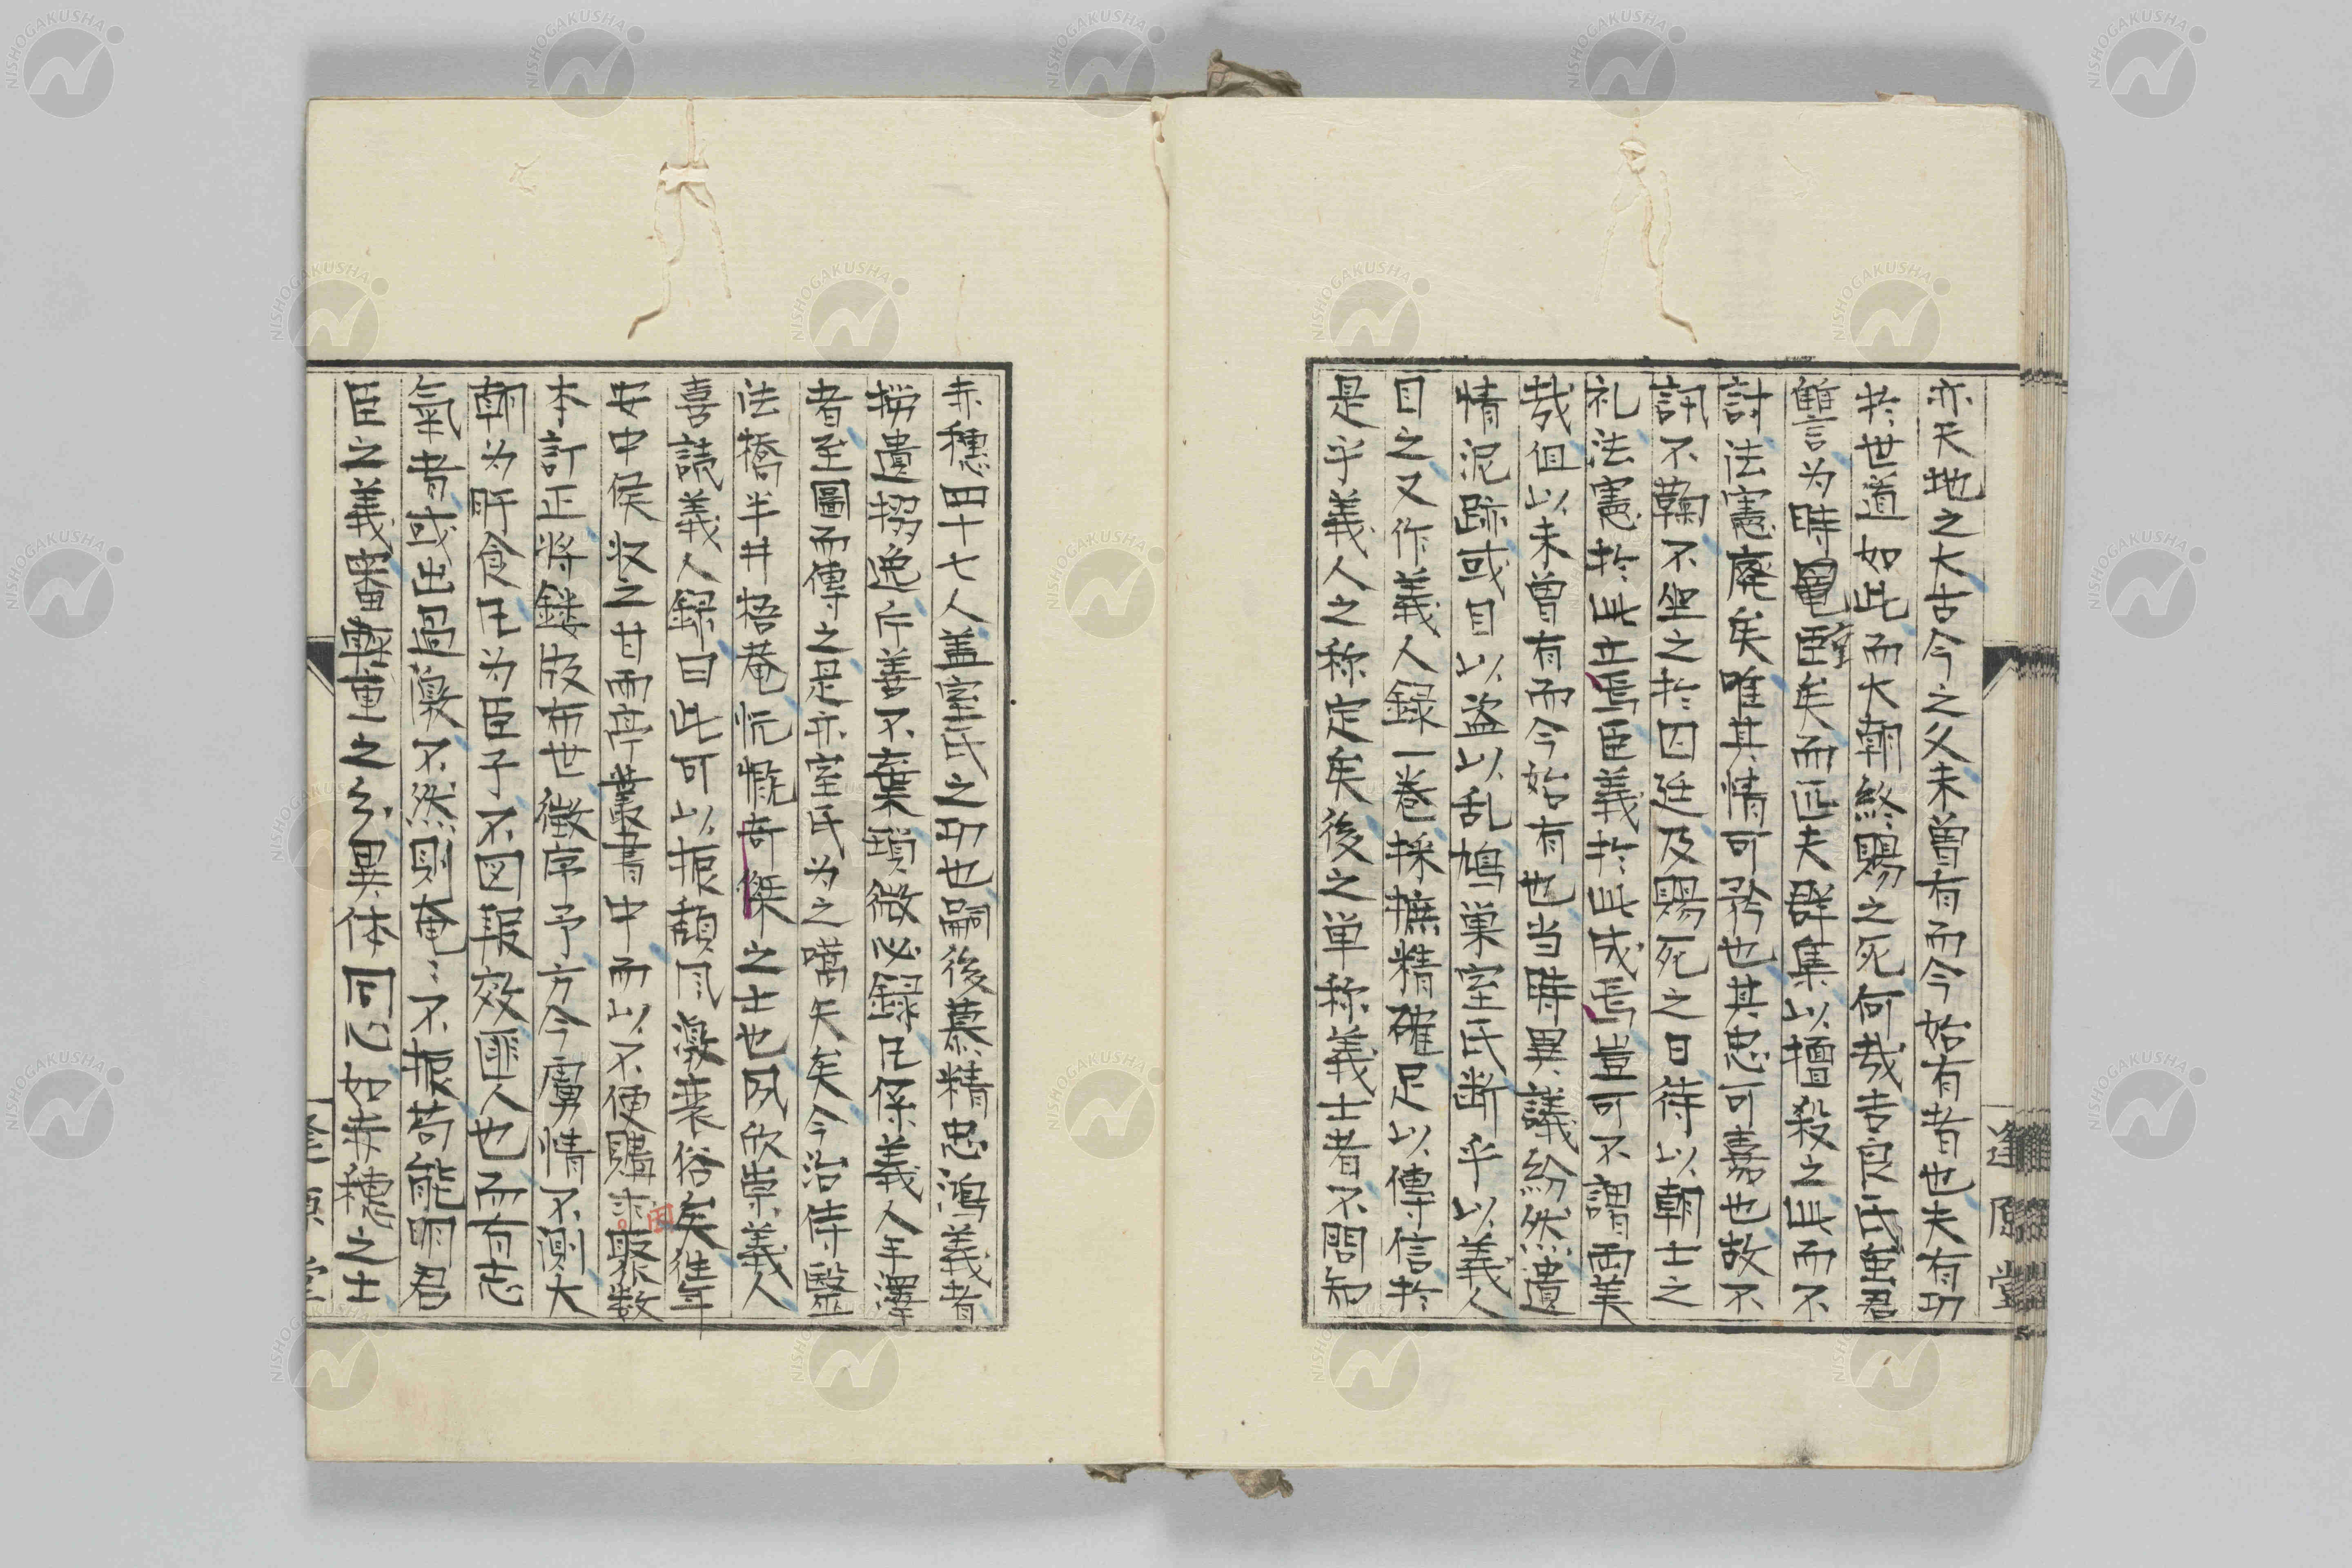 亦天地之大古今之父未曽有而今始有者也夫有功
扵世道如此而大朝終賜之死何哉吉良氏虽君
讐言为時室臣矣而匹夫群集以擅殺之此而不
討法憲廃矣唯其情可矜也其忠可嘉也故不
訊不鞠不坐之扵囚廷及賜死之日待以朝士之
礼法憲扵此立焉臣義扵此成焉豈可不謂両美
哉但以未曽有而今始有也当時異議紛然遺
情泥跡或目以盗以乱鳩巣室氏断乎以義人
目之又作義人録一巻採摭精確足以傳信扵
是乎義人之称定矣後之単称義士者不問知
赤穗四十七人盖室氏之功也嗣後慕精忠鴻義者
撈遺掇逸片善不棄瑣微必録凡係義人手澤
者至圖而傳之是亦室氏为之嚆矢矣今治侍醫
法橋半井梧菴忼慨奇傑之士也夙欣慕義人
喜読義人録曰此可以振頽風激衰俗矣往年
安中侯収之甘雨亭叢書中而以不便購求聚数
本訂正将鏤版布世徴序予方今虜情不測大
朝为旰食凡为臣子不図報效匪人也而有志
氣者或出過激不然則奄〻不振苟能明君
臣之義審輕重之分異体同心如赤穗之士
逢原堂